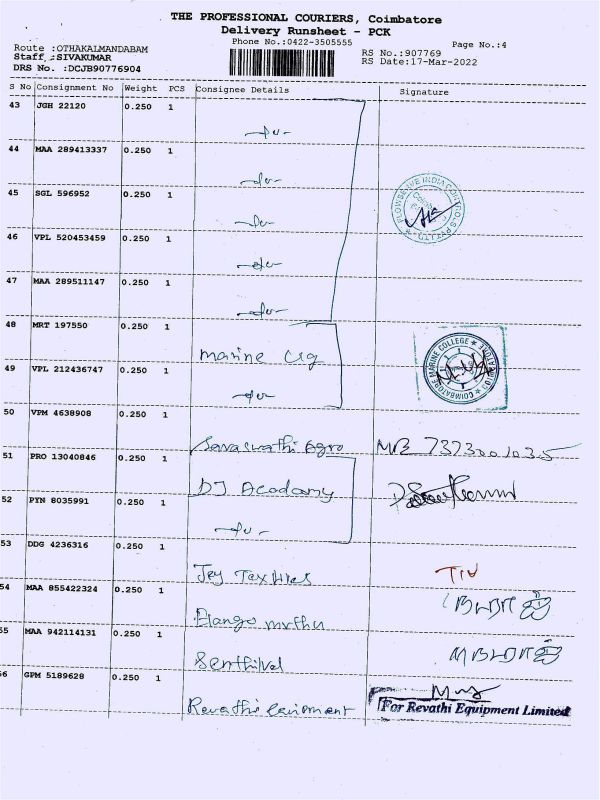 THE PROFESSIONAL COURIERS, Coimbatore
Delivery Runsheet - PCK
Phone No.:0422-3505555
Page No.:4
Route :OTHAKALMANDABAM
RS No.:907769
Staff :SIVAKUMAR
RS Date:17-Mar-2022
DRS No. :DCJB90776904
S No Consignment No Weight PCS Consignee Details Signature
43 JGH 22120 0.250 1
-do-
44 MAA 289413337 0.250 1
-do-
45 SGL 596952 0.250 1
-do-
46 VPL 520453459 0.250 1
-do-
47 MAA 289511147 0.250 1
-do-
48 MRT 197550 0.250 1
marine clg
COIMBATORE MARINE COLLEGE
49 VPL 212436747 0.250 1
-do-
50 VPM 4638908 0.250 1
Saraswathi Agro
51 PRO 13040846 0.250 1
DJ Academy
52 PYN 8035991 0.250 1
-do-
53 DDG 4236316 0.250 1
Jey Textiles
54 MAA 855422324 0.250 1
Elango muthu
55 MAA 942114131 0.250 1
Senthilvel
56 GPM 5189628 0.250 1
Revathi
For Revathi Equipment Limited